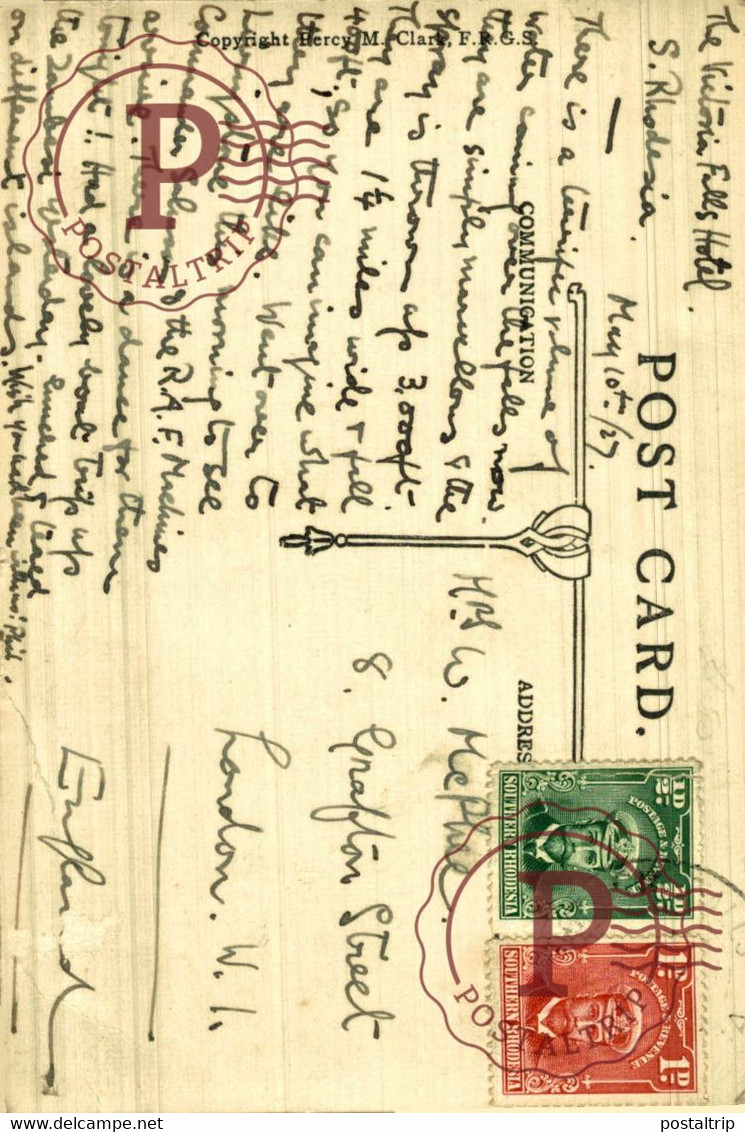 POST CARD.
Copyright Percy M. Clark, F.R.G.S.
COMMUNICATION
ADDRES
The Victoria Falls Hotel.
S. Rhodesia.
May 10th/27.
There is a terrific volume of
water coming over the falls now
they are simply marvellous & the
spray is thrown up 3,000 ft.
They are 1¼ miles wide & fall
400 ft, so you can imagine what
they are like. Went over to
this morning to see
Commander & the R.A.F. Machines
arrive. There is a dance for them
tonight! Had a lovely boat trip up
the Zambesi yesterday. lunched & tea'd
on different islands. Wish you had been with us! Phil.
Mrs W. McPhie.
8. Grafton Street
London. W.1.
England
½D
POSTAGE & REVENUE
½D
SOUTHERN RHODESIA
1D
POSTAGE & REVENUE
1D
SOUTHERN RHODESIA
P
POSTALTRIP
P
POSTALTRIP
delcampe.net
postaltrip